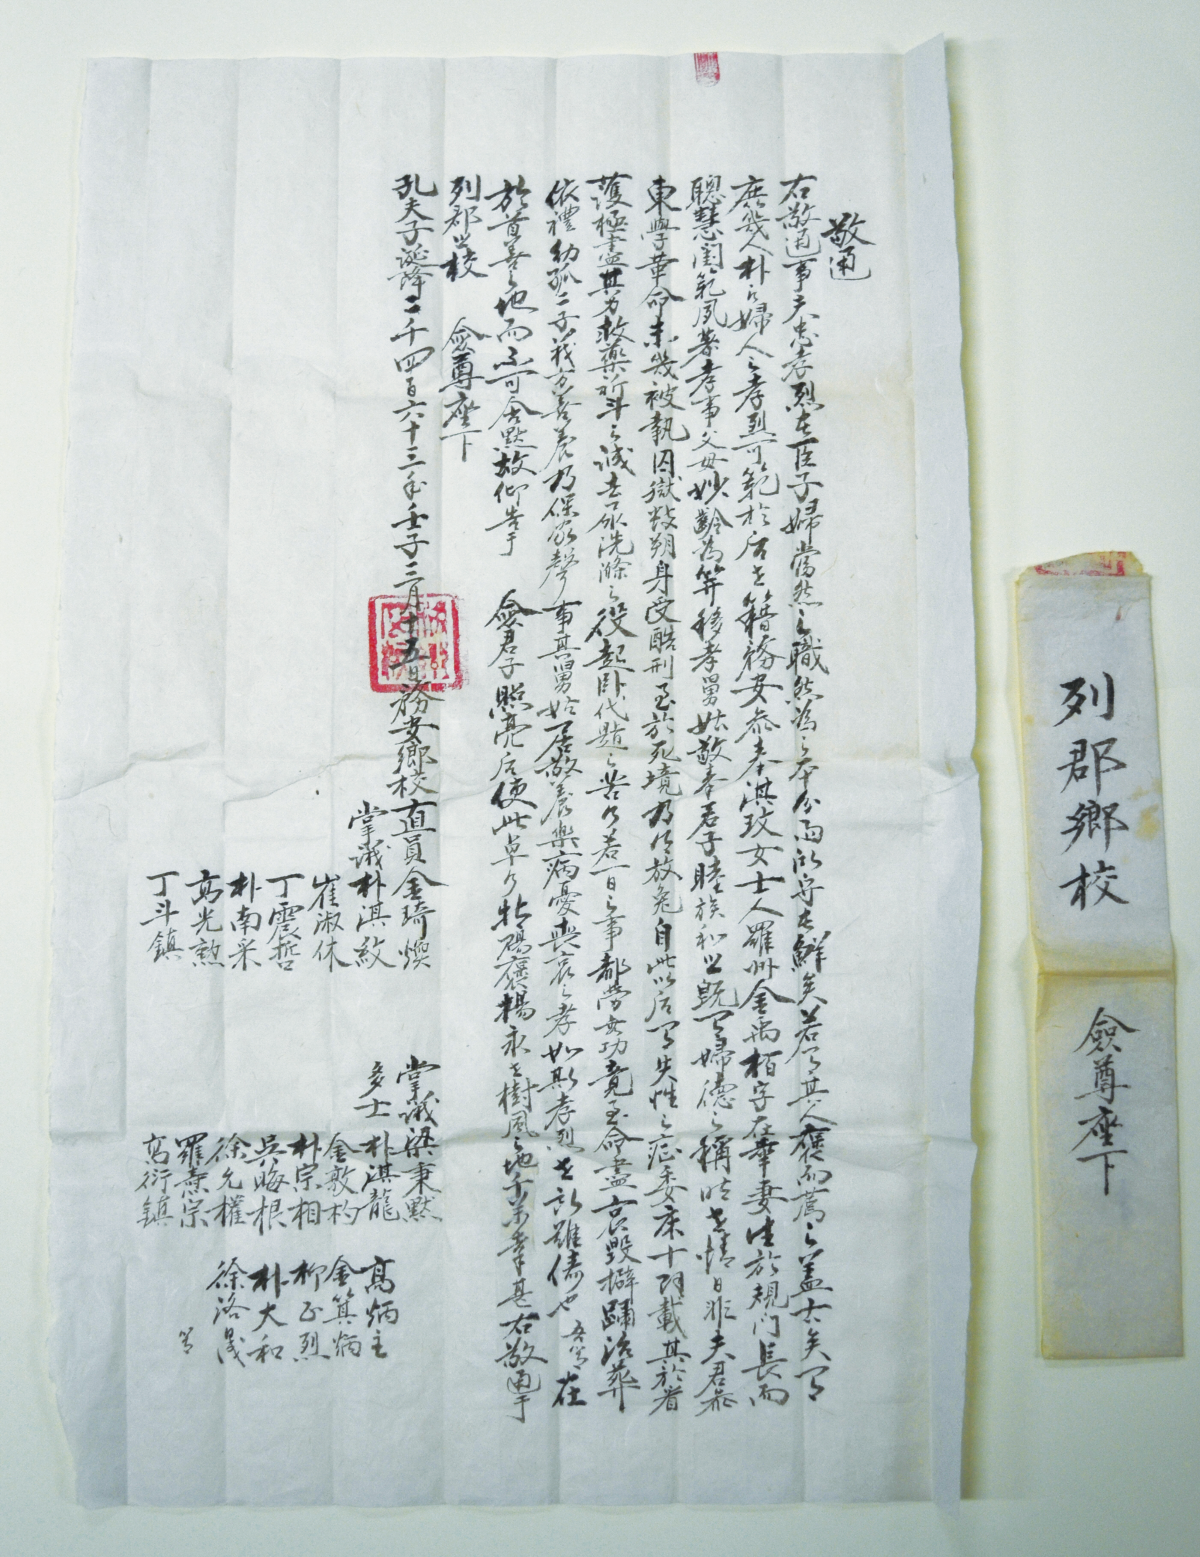 敬通
右敬通事夫忠孝烈在臣子婦當然之職然爲之本分而能守者鮮矣若有其人褒而薦之盖古矣有
庶幾人朴氏婦人之孝烈可範於后世籍務安參奉淇玟女士人羅州金禹栢字在華妻生於規門長而
聰慧閨範夙著孝事父母妙齡爲笄移孝舅姑敬奉君子睦族和 旣有婦德之稱 世情日非夫君
東學革命未幾被執囚獄數朔身受酷刑至於死境乃得放免自此以后有失性之症委床十 載其於看
護極盡其力救藥祈斗之誠 尿洗滌之役起臥代 之苦如若一日之事都勞女功竟至命盡哀毁擗踊治葬
依禮幼孤二子義方善養乃保家聲事其舅姑居敬養樂病憂喪哀之孝如斯孝烈世所難儔也吾等在
於首善之地而不可含默故仰告于 僉君子照亮后使此卓行 礪褒揚永世樹風之地千萬幸甚右敬通于
列郡之校 僉尊座下
孔夫子誕降二千四百六十三年壬子三月十五日務安鄕校直員金琦煥 掌議梁秉默
掌議朴淇紋 多士朴淇龍 高炳主
崔淑休 金敦杓 金箕炳
丁震哲 朴宗相 柳正烈
朴南采 吳晦根 朴大和
高光勲 徐允權 徐洛晟
丁斗鎭 羅燾宗 等
高衍鎭
列郡鄕校 僉尊座下